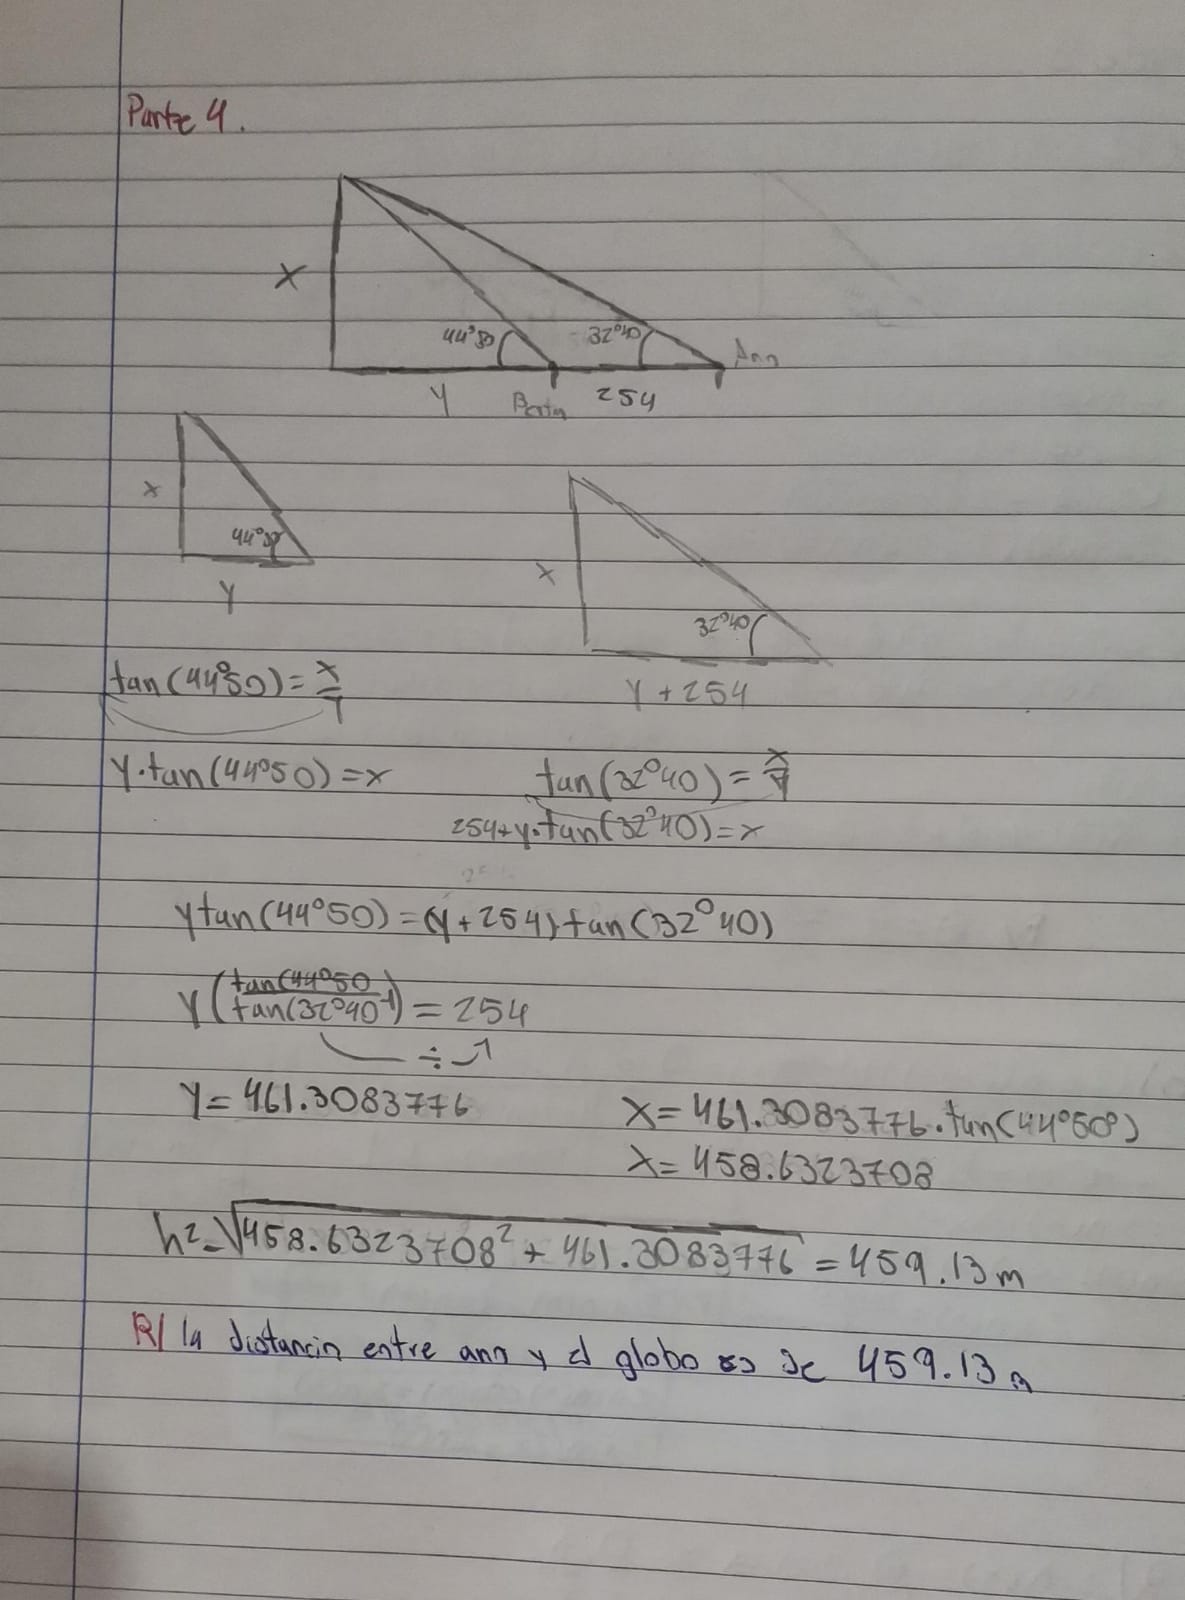 Parte 4.
X
44°50
32°40
Ann
Y
Berta
254
X
44°50
Y
X
32°40
Y + 254
tan(44°50) = x/Y
Y·tan(44°50) = x
tan(32°40) = x/Y
254+y·tan(32°40) = x
ytan(44°50) = (y+254) tan(32°40)
Y (tan(44°50 / tan(32°40 -1) = 254
÷
Y = 461.3083776
X = 461.3083776·tan(44°50°)
X = 458.6323708
h² = √458.6323708² + 461.3083776 = 459.13m
R/ la distancia entre ann y el globo es de 459.13 m